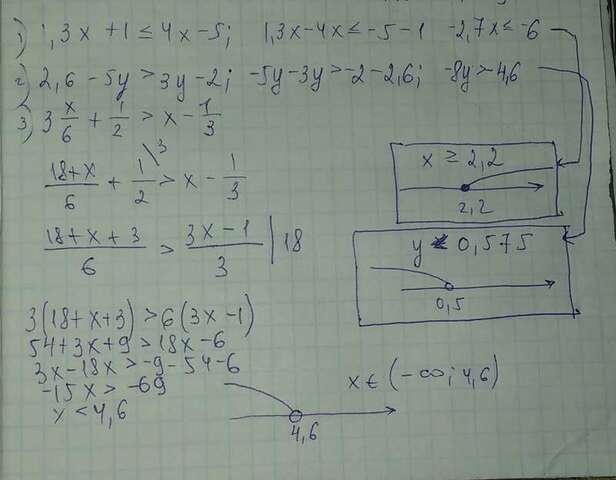 1) 1,3x + 1 ≤ 4x - 5; 1,3x - 4x ≤ -5 - 1 -2,7x ≤ -6
2) 2,6 - 5y > 3y - 2; -5y - 3y > -2 - 2,6; -8y > -4,6
3) 3 x/6 + 1/2 > x - 1/3
x ≥ 2,2
2,2
(18+x)/6 + 1/2 \3 > x - 1/3
(18+x+3)/6 > (3x-1)/3 | 18
y < 0,575
0,5
3(18+x+3) > 6(3x-1)
54+3x+9 > 18x-6
3x-18x > -9-54-6
-15x > -69
x < 4,6
x ∈ (-∞; 4,6)
4,6